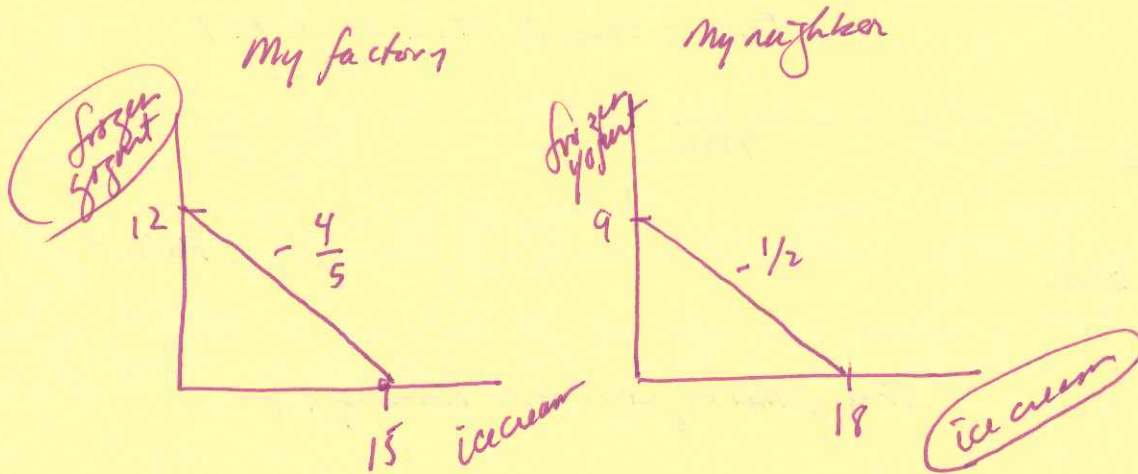 My factory
frozen
yogurt
12
- 4/5
15
ice cream
My neighbor
frozen
yogurt
9
- 1/2
18
ice cream